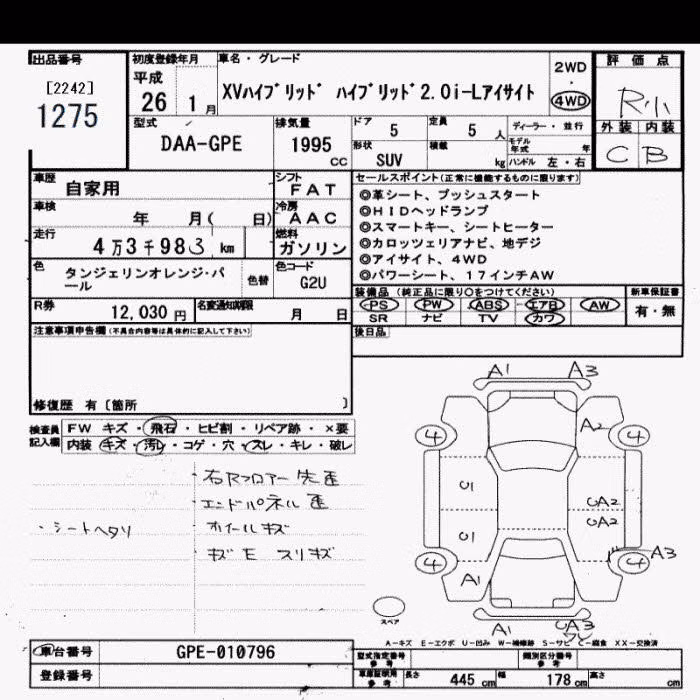 出品番号
[2242]
1275
初度登録年月
平成
26年 1月
車名・グレード
XVハイブリッド ハイブリッド2.0i-Lアイサイト
2WD
・
4WD
評価点
R小
外装 内装
C B
型式
DAA-GPE
排気量
1995
cc
ドア
5
定員
5 人
ディーラー・並行
形状
SUV
積載
kg
モデル年式 年
ハンドル 左・右
車歴
自家用
シフト
FAT
車検
年 月( 日)
冷房
AAC
走行
4万3千983 km
燃料
ガソリン
色
タンジェリンオレンジ・パール
色替
色コード
G2U
R券
12,030 円
名変通知期限
月 日
セールスポイント(正常に機能するものに限ります)
◎革シート、プッシュスタート
◎HIDヘッドランプ
◎スマートキー、シートヒーター
◎カロッツェリアナビ、地デジ
◎アイサイト、4WD
◎パワーシート、17インチAW
装備品(純正品に限り○をつけてください)
新車保証書
PS PW ABS エアB AW
SR ナビ TV カワ
有・無
後日品
注意事項申告欄(不具合内容等は具体的に記入して下さい)
修復歴 有〔箇所 〕
検査員記入欄
FW キズ・飛石・ヒビ割・リペア跡・×要
内装 キズ・汚レ・コゲ・穴・スレ・キレ・破レ
右Rフロアー先歪
エンドパネル歪
・シートヘタリ
ホイールキズ
キズE スリキズ
A1 A3
4 A2 4
U1 UA2
UA2
U1
4 A1 4 A3
スペア
A1 UA3
A-キズ E-エクボ U-凹み W-補修跡 S-サビ C-腐食 XX-交換済
車台番号
GPE-010796
登録番号
型式指定番号
参考
類別区分番号
参考
車庫証明用
参考
長さ 445 cm
幅 178 cm
高さ cm